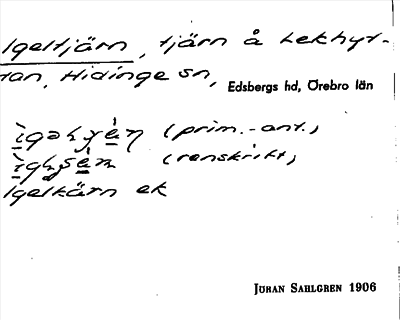 Igeltjärn, tjärn å Lekhyt-
tan, Hidinge sn,
Edsbergs hd, Örebro län
(prim.-ant.)
(renskrift)
Igelkärn ek
Jöran Sahlgren 1906